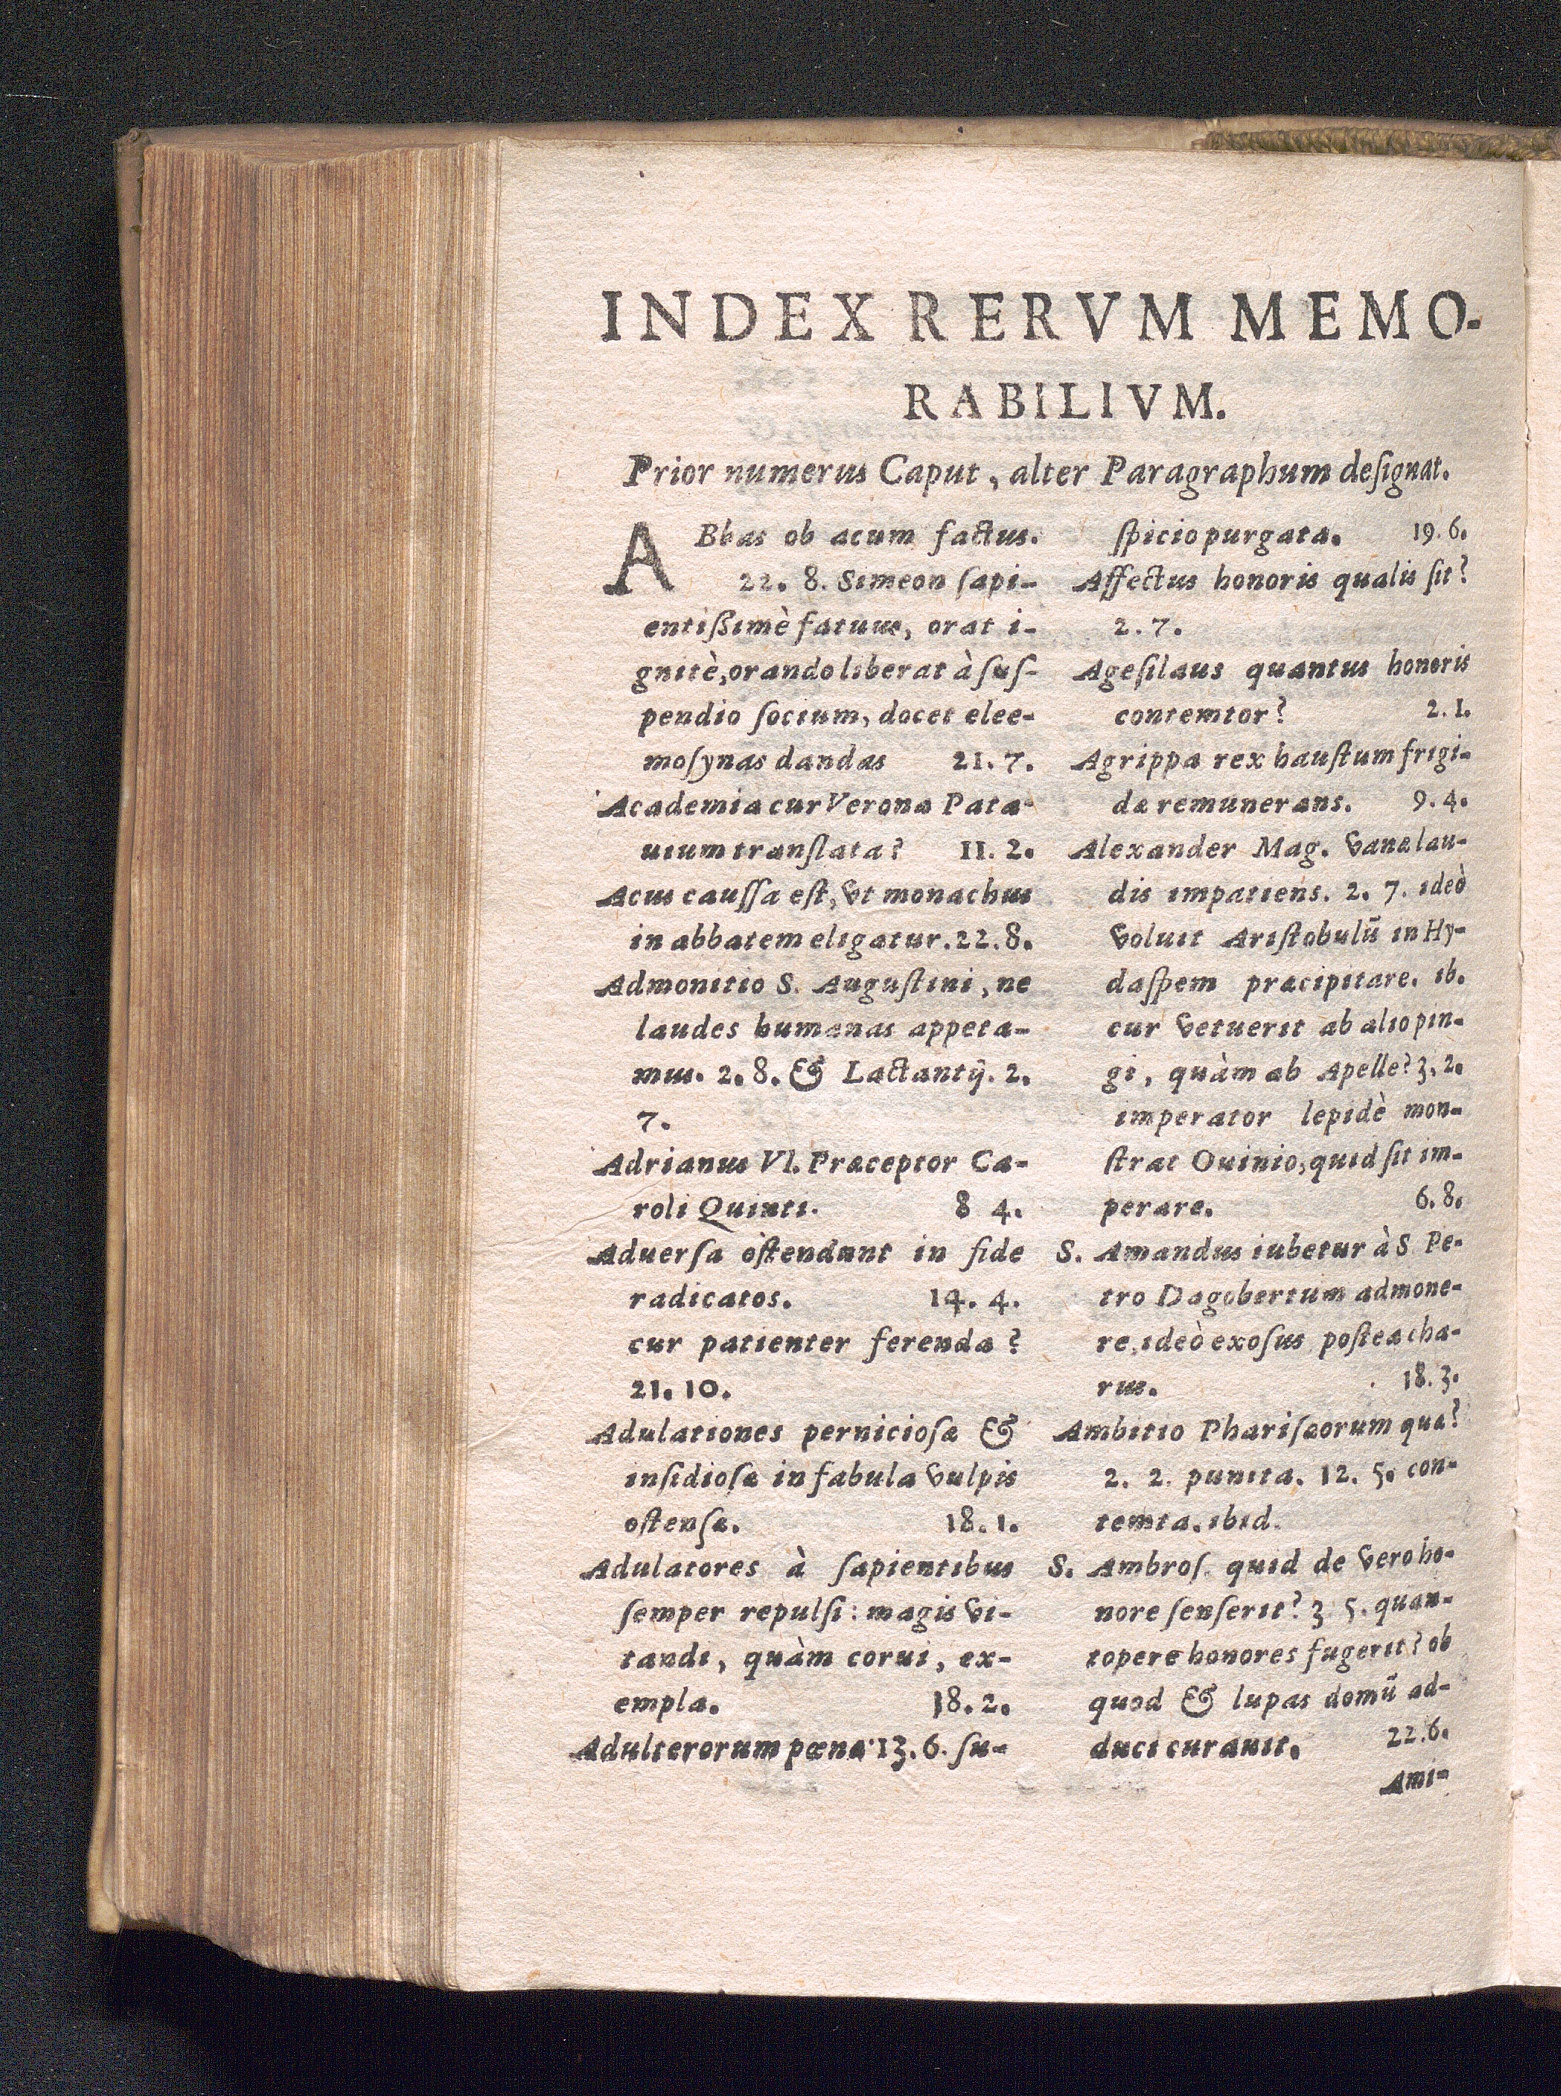 INDEX RERVM MEMO-
RABILIVM.
Prior numerus Caput, alter Paragraphum deſignat.
ABbas ob acum factus.
22. 8. Simeon ſapi-
entiſsimè fatuus, orat i-
gnitè, orando liberat à ſuſ-
pendio ſocium, docet elee-
moſynas dandas 21. 7.
Academia cur Verona Pata-
uium tranſlata? 11. 2.
Acus cauſſa eſt, vt monachus
in abbatem eligatur. 22. 8.
Admonitio S. Auguſtini, ne
laudes humanas appeta-
mus. 2. 8. & Lactantij. 2.
7.
Adrianus VI. Præceptor Ca-
roli Quinti. 8 4.
Aduerſa oſtendunt in fide
radicatos. 14. 4.
cur patienter ferenda?
21. 10.
Adulationes pernicioſæ &
inſidioſæ in fabula vulpis
oſtenſæ. 18. 1.
Adulatores à ſapientibus
ſemper repulſi: magis vi-
tandi, quàm corui, ex-
empla. 18. 2.
Adulterorum pœna 13. 6. ſu-
ſpicio purgata. 19. 6.
Affectus honoris qualis ſit?
2. 7.
Ageſilaus quantus honoris
contemtor? 2. 1.
Agrippa rex hauſtum frigi-
dæ remunerans. 9. 4.
Alexander Mag. vanæ lau-
dis impatiens. 2. 7. ideò
voluit Ariſtobulū in Hy-
daſpem præcipitare. ib.
cur vetuerit ab alio pin-
gi, quàm ab Apelle? 3. 2.
imperator lepidè mon-
ſtrat Ouinio, quid ſit im-
perare. 6. 8.
S. Amandus iubetur à S Pe-
tro Dagobertum admone-
re, ideò exoſus poſtea cha-
rus. 18. 3.
Ambitio Phariſæorum quæ?
2. 2. punita. 12. 5. con-
temta. ibid.
S. Ambroſ. quid de vero ho-
nore ſenſerit? 3 5. quan-
topere honores fugerit? ob
quod & lupas domū ad-
duci curauit. 22. 6.
Ami-